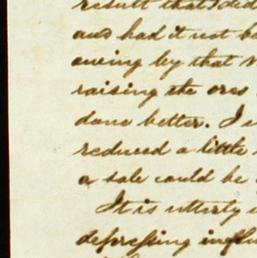 result that I did
and had it not
owing by that
raising the ores
done better. I
reduced a little
a sale could be
It is utterly
depressing influ